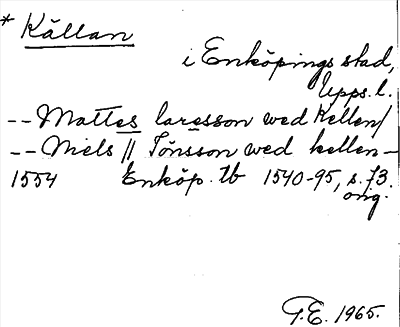 * Källan
i Enköpings stad,
Upps. l.
-- Mattes laresson wed Kellen/
-- Niels // Tönsson wed kellen --
1554 Enköp. tb 1540-95, s. 73.
orig.
T.E. 1965.